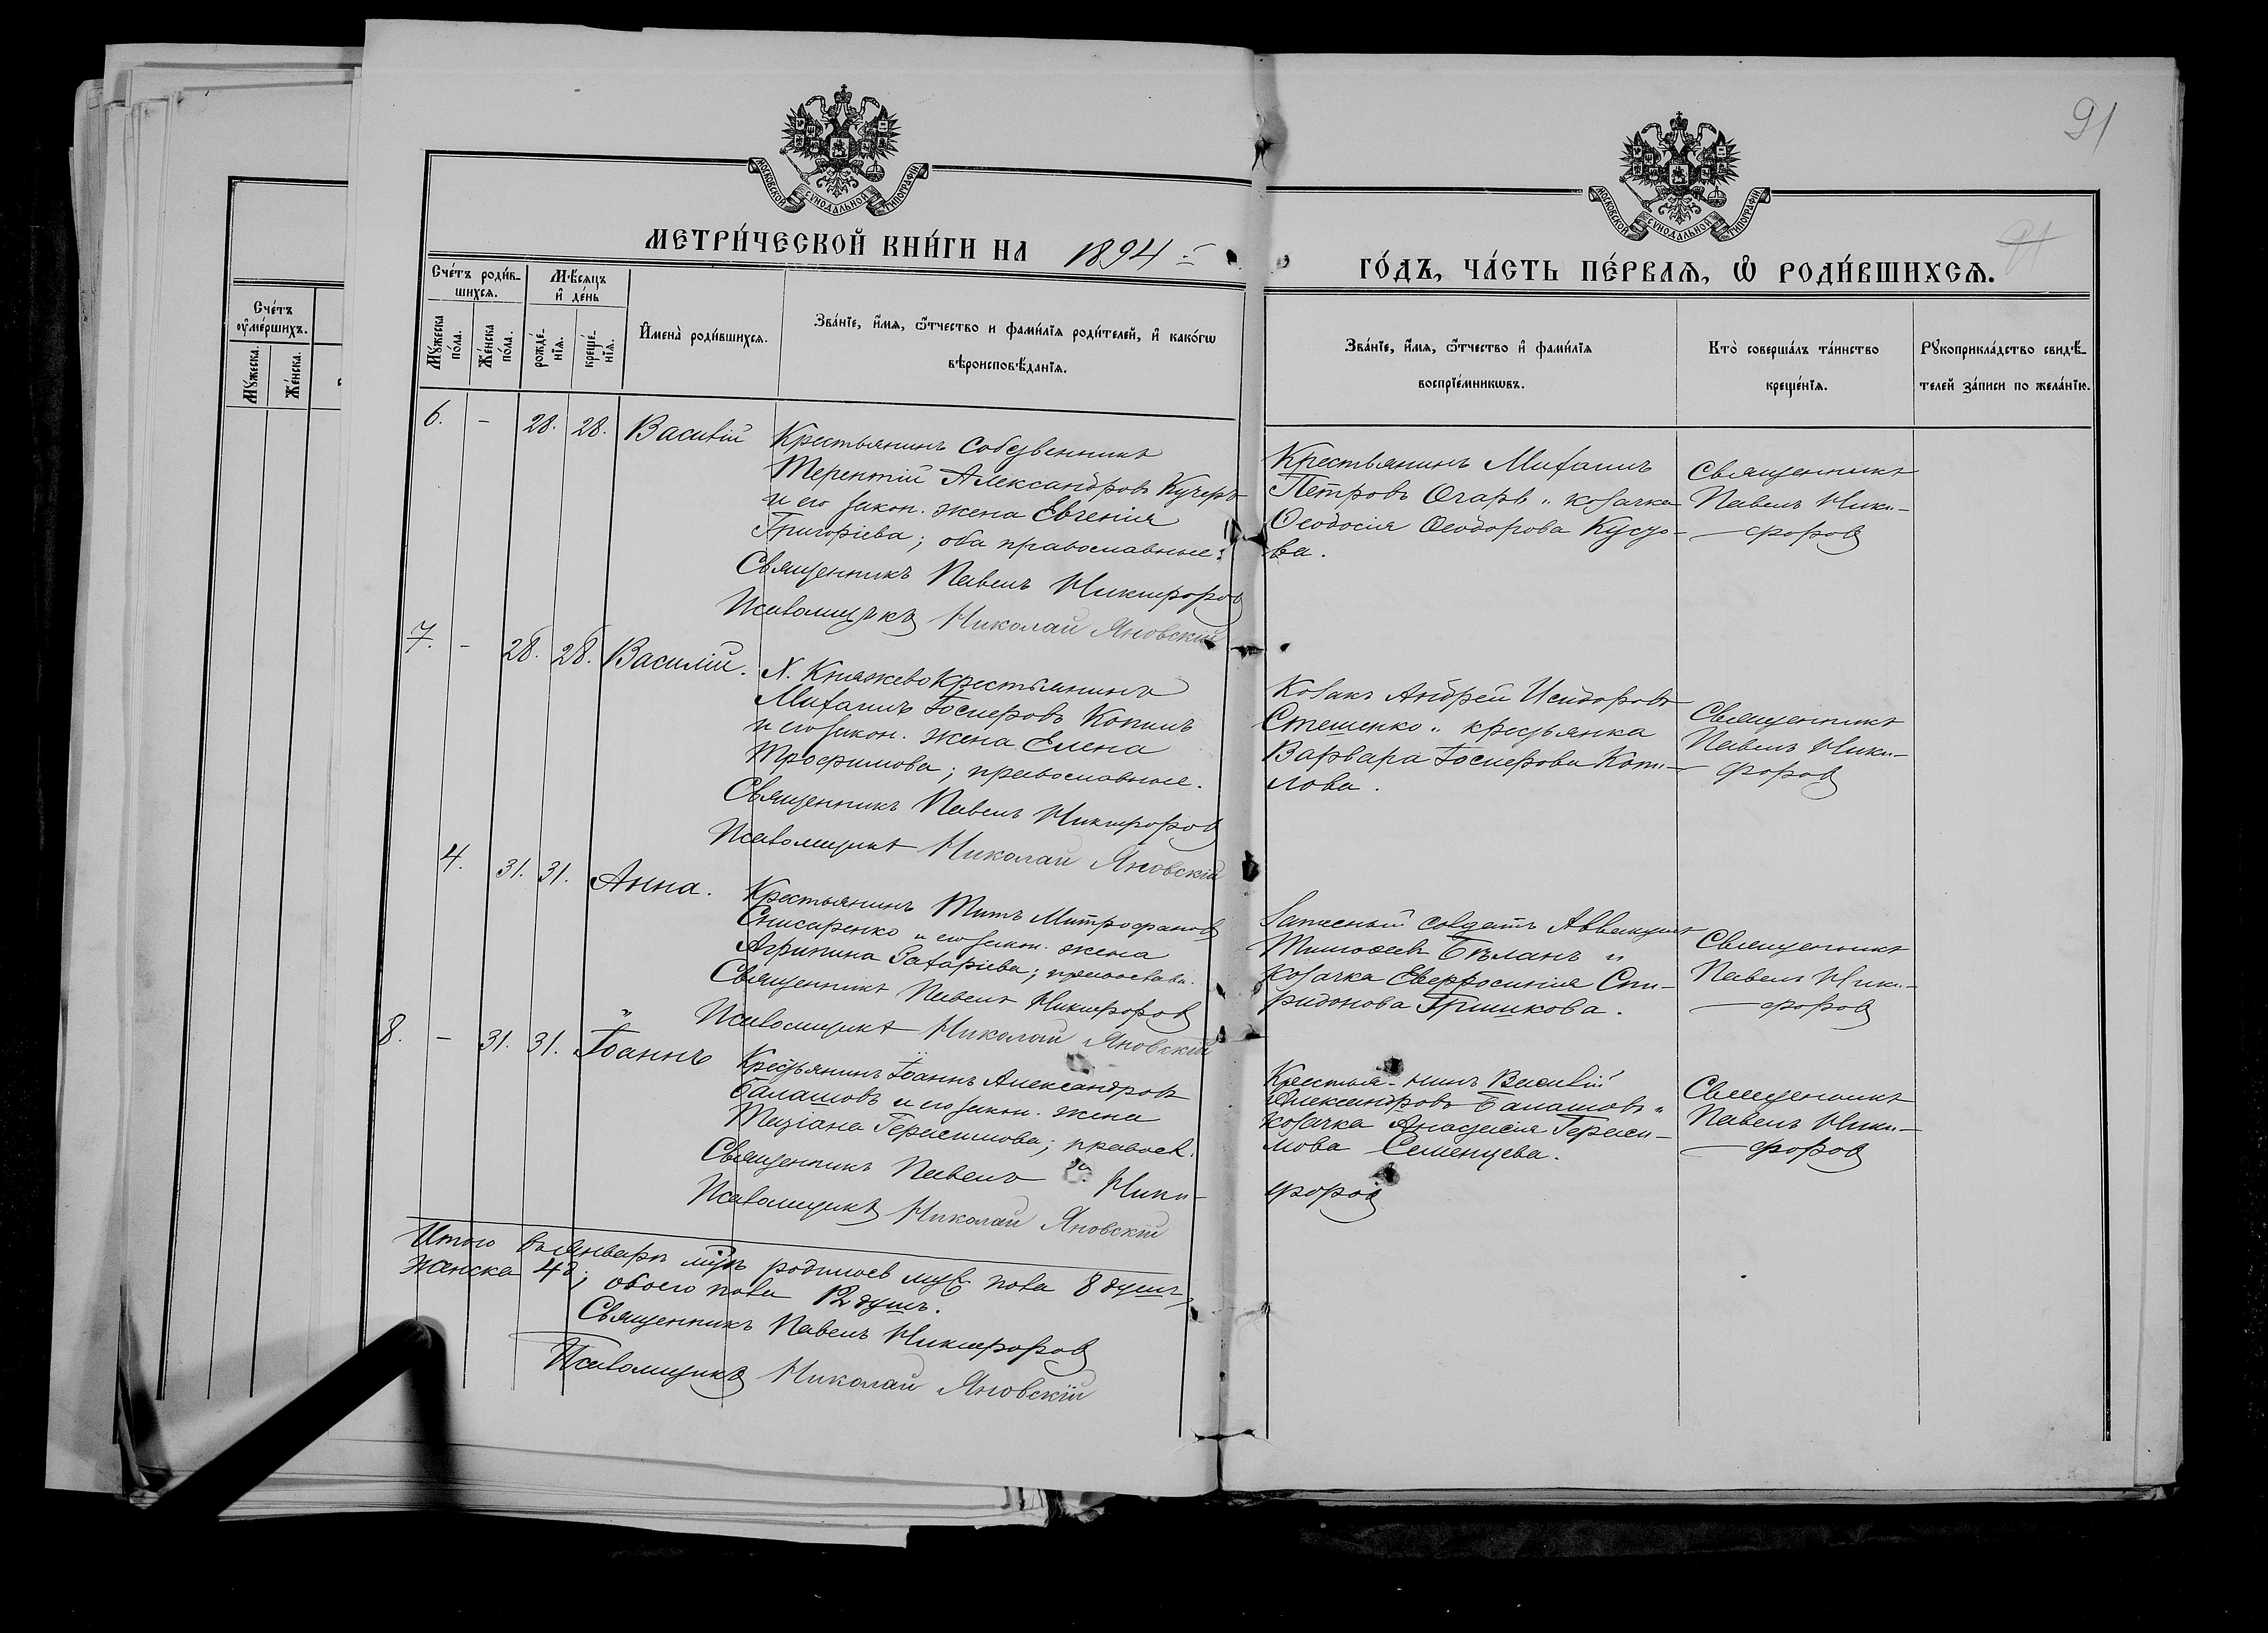 91
91
МОСКОВСКОЙ СУНОДАЛЬНОЙ ТИПОГРАФІИ
МОСКОВСКОЙ СУНОДАЛЬНОЙ ТИПОГРАФІИ
МЕТРИ́ЧЕСКОЙ КНИ́ГИ НА 1894
ГО́ДЪ, ЧА́СТЬ ПЕ́РВАЯ, Ѡ҆ РОДИ́ВШИХСЯ.
Сче́тъ оу҆ме́ршихъ.
Мꙋ́жеска.
Же́нска.
Сче́тъ роди́в-
шихся.
Мѣ́сяцъ
и҆ де́нь
Мꙋ́жеска по́ла.
Же́нска по́ла.
рожде́-
нїя.
креще́-
нїя.
И҆мена̀ роди́вшихся.
Зва́нїе, и҆́мя, ѻ҆́тчество и фами́лїя роди́телей, и҆ како́гѡ
вѣроисповѣ́данїя.
Зва́нїе, и҆́мя, ѻ҆́тчество и҆ фами́лїя
воспрїе́мникѡвъ.
Кто̀ соверша́лъ та́инство
креще́нїя.
Рꙋкоприкла́дство свидѣ́-
телей за́писи по жела́нїю.
6. - 28. 28. Василій
Крестьянинъ собственникъ
Терентій Александровъ Кучеръ
и его закон. жена Евгенія
Григоріева; оба православные.
Священникъ Павелъ Никифоровъ
Псаломщикъ Николай Яновскій
Крестьянинъ Михаилъ
Петровъ Огарь и козачка
Ѳеодосія Ѳеодорова Кусто-
ва.
Священникъ
Павелъ Ники-
форовъ
7. - 28. 28. Василій.
Х. Княжево Крестьянинъ
Михаилъ Іосифовъ Копилъ
и его закон. жена Елена
Трофимова; православные.
Священникъ Павелъ Никифоровъ
Псаломщикъ Николай Яновскій
Козакъ Андрей Исидоровъ
Стешенко и крестьянка
Варвара Іосифова Копи-
лова.
Священникъ
Павелъ Ники-
форовъ
4. 31. 31. Анна.
Крестьянинъ Титъ Митрофановъ
Снисаренко и его закон. жена
Агрипина Захаріева; православн.
Священникъ Павелъ Никифоровъ
Псаломщикъ Николай Яновскій
Запасный солдатъ Аввакумъ
Тимоѳеевъ Бѣланъ и
козачка Евфросинія Спи-
ридонова Гришкова.
Священникъ
Павелъ Ники-
форовъ
8. - 31. 31. Іоаннъ
Крестьянинъ Іоаннъ Александровъ
Балашовъ и его закон. жена
Татіана Герасимова; правосл.
Священникъ Павелъ Ники-
форовъ
Псаломщикъ Николай Яновскій
Крестья-нинъ Василій
Александровъ Балашовъ и
козачка Анастасія Гераси-
мова Семенцева.
Священникъ
Павелъ Ники-
форовъ
Итого въ Январѣ мцѣ родилось муж. пола 8 душъ,
женска 4 д; обоего пола 12 душъ.
Священникъ Павелъ Никифоровъ
Псаломщикъ Николай Яновскій